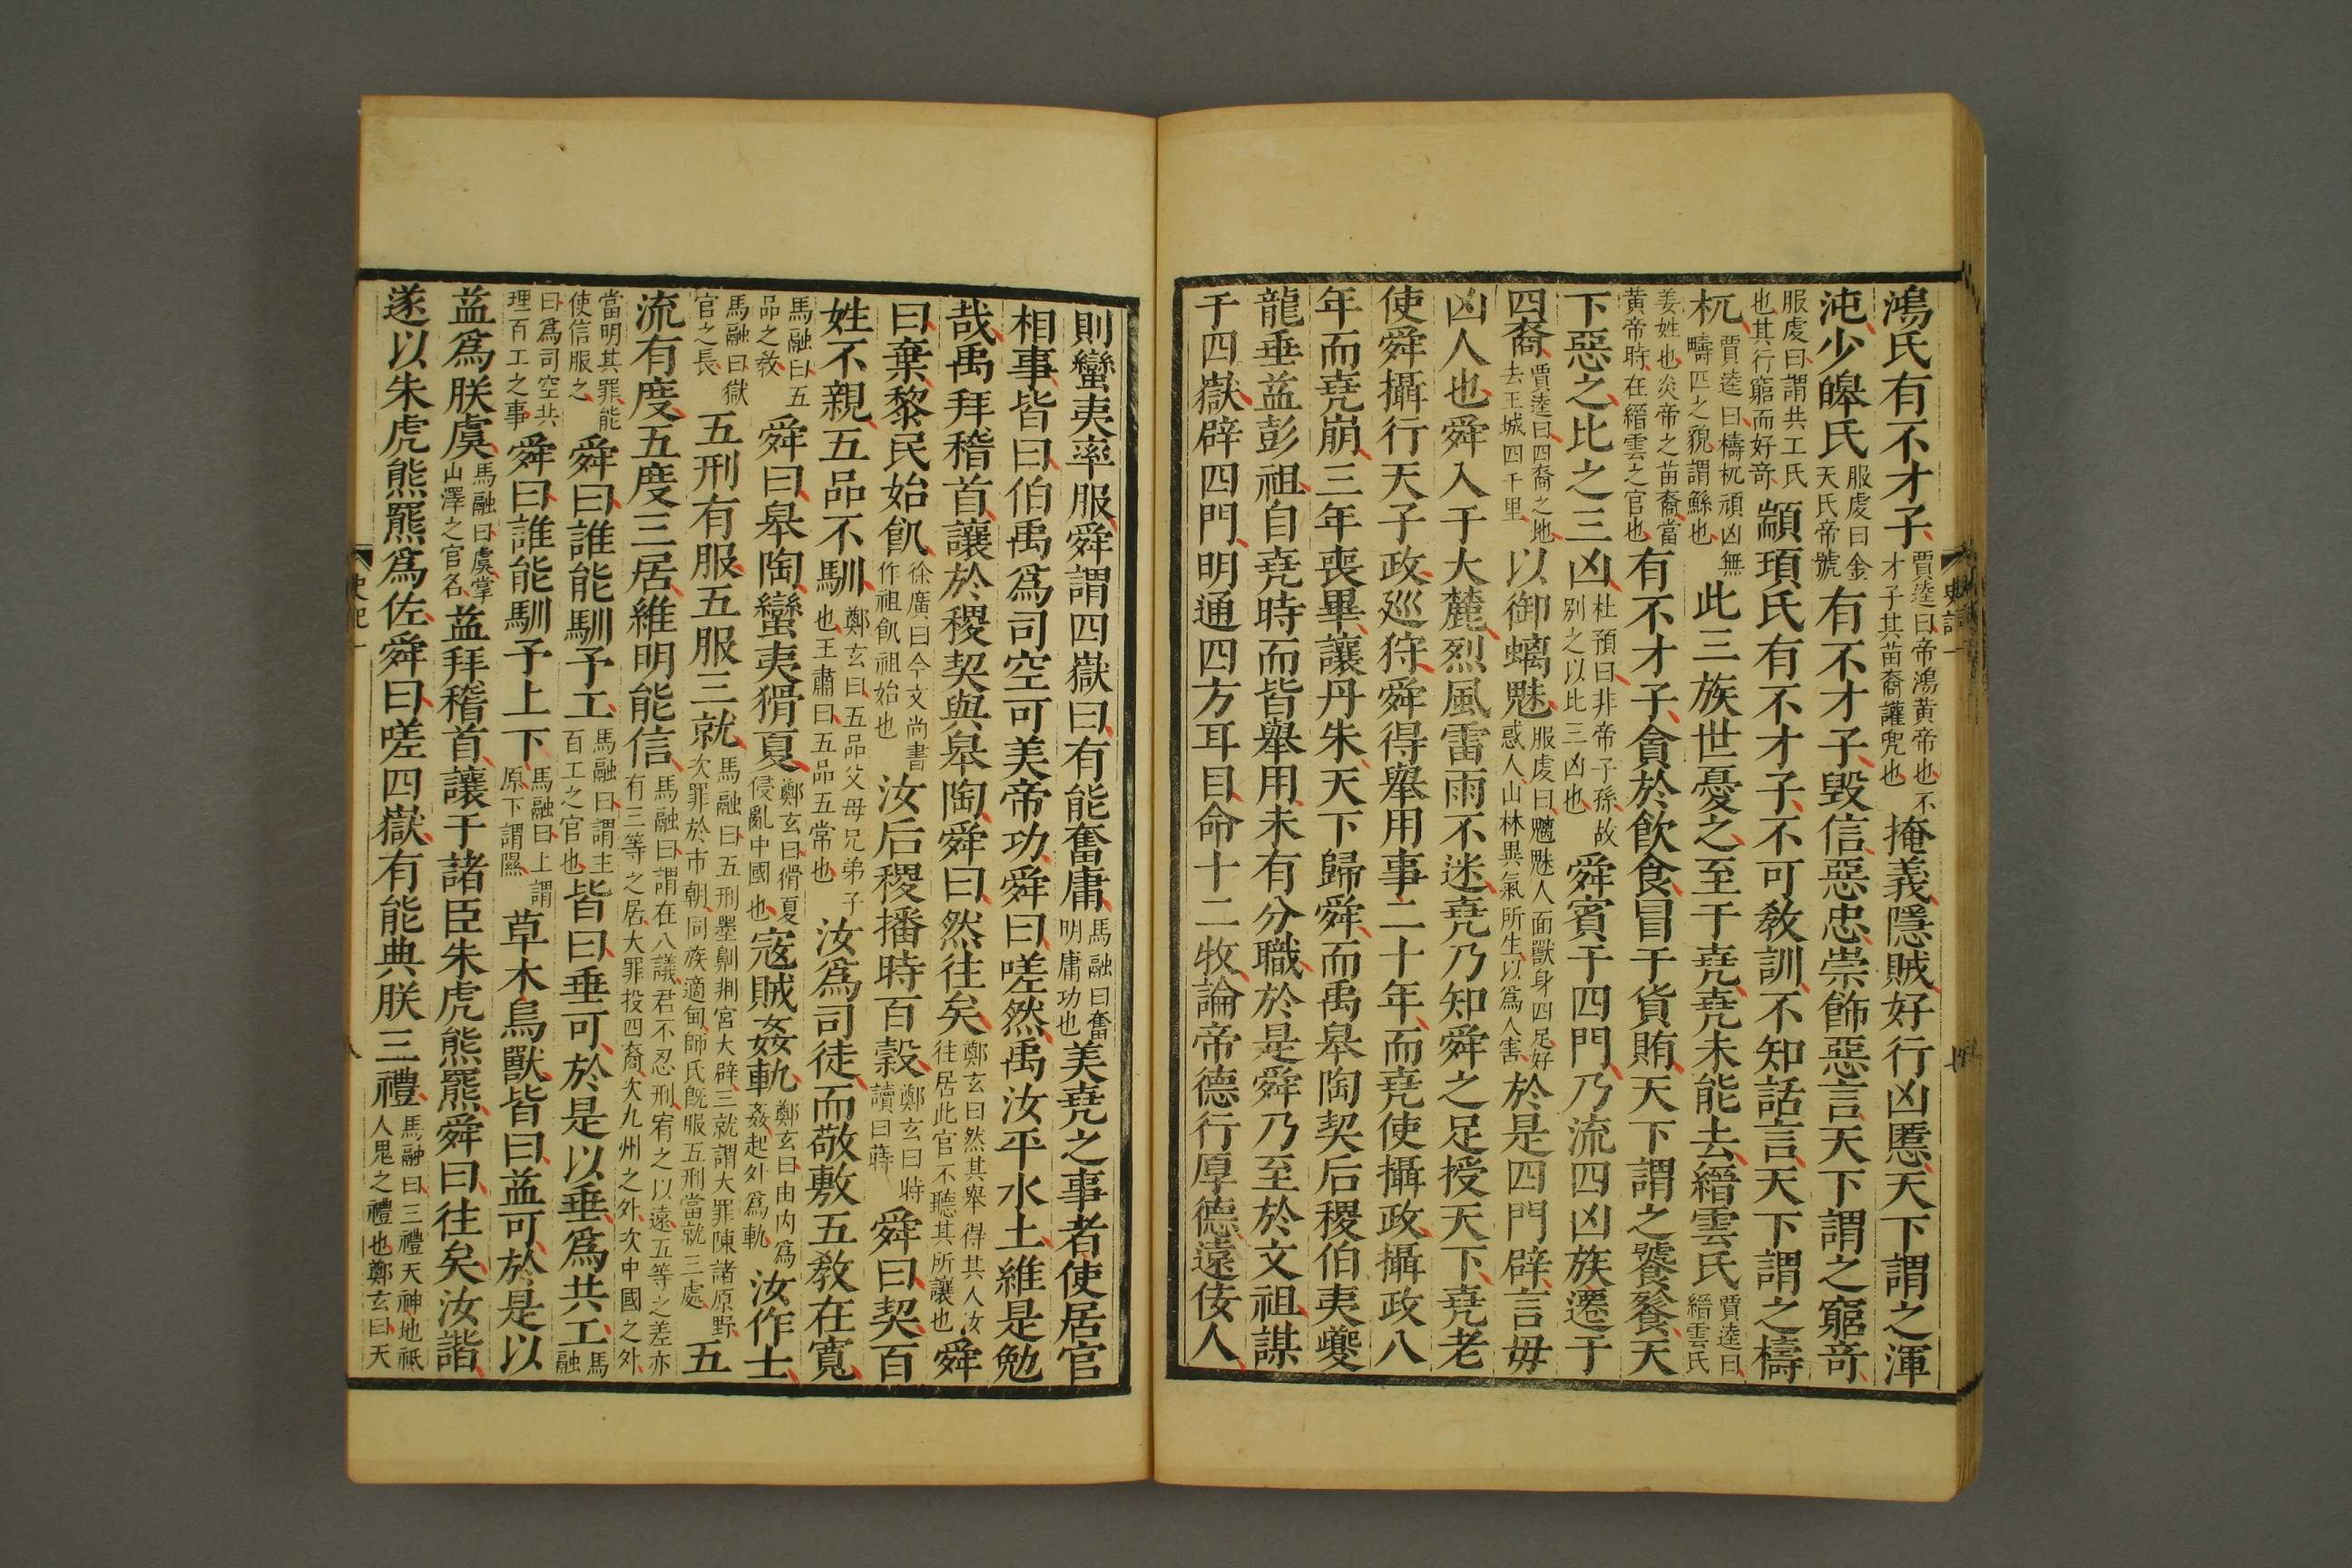 鴻氏有不才子賈逵曰帝鴻黃帝也不才子其苗裔讙兜也掩義隱賊好行凶慝天下謂之渾
沌少皞氏服虔曰金天氏帝號有不才子毀信惡忠崇飾惡言天下謂之窮奇
服虔曰謂共工氏也其行窮而好奇顓頊氏有不才子不可教訓不知話言天下謂之檮
杌賈逵曰檮杌頑凶無疇匹之貌謂鯀也此三族世憂之至于堯堯未能去縉雲氏賈逵曰縉雲氏
姜姓也炎帝之苗裔當黃帝時在縉雲之官也有不才子貪於飲食冒于貨賄天下謂之饕餮天
下惡之比之三凶杜預曰非帝子孫故別之以比三凶也舜賓于四門乃流四凶族遷于
四裔賈逵曰四裔之地去王城四千里以御螭魅服虔曰魑魅人面獸身四足好惑人山林異氣所生以爲人害於是四門辟言毋
凶人也舜入于大麓烈風雷雨不迷堯乃知舜之足授天下堯老
使舜攝行天子政巡狩舜得舉用事二十年而堯使攝政攝政八
年而堯崩三年喪畢讓丹朱天下歸舜而禹皋陶契后稷伯夷夔
龍垂益彭祖自堯時而皆舉用未有分職於是舜乃至於文祖謀
于四嶽辟四門明通四方耳目命十二牧論帝德行厚德遠佞人
史記一
則蠻夷率服舜謂四嶽曰有能奮庸馬融曰奮明庸功也美堯之事者使居官
相事皆曰伯禹爲司空可美帝功舜曰嗟然禹汝平水土維是勉
哉禹拜稽首讓於稷契與皋陶舜曰然往矣鄭玄曰然其舉得其人汝往居此官不聽其所讓也舜
曰棄黎民始飢徐廣曰今文尚書作祖飢祖始也汝后稷播時百穀鄭玄曰時讀曰蒔舜曰契百
姓不親五品不馴鄭玄曰五品父母兄弟子也王肅曰五品五常也汝爲司徒而敬敷五教在寬
馬融曰五品之教舜曰皋陶蠻夷猾夏鄭玄曰猾夏侵亂中國也寇賊姦軌鄭玄曰由內爲姦起外爲軌汝作士
馬融曰獄官之長五刑有服五服三就馬融曰五刑墨劓剕宮大辟三就謂大罪陳諸原野次罪於市朝同族適甸師氏旣服五刑當就三處五
流有度五度三居維明能信馬融曰謂在八議君不忍刑宥之以遠五等之差亦有三等之居大罪投四裔次九州之外次中國之外
當明其罪能使信服之舜曰誰能馴予工馬融曰謂主百工之官也皆曰垂可於是以垂爲共工馬融
曰爲司空共理百工之事舜曰誰能馴予上下馬融曰上謂原下謂隰草木鳥獸皆曰益可於是以
益爲朕虞馬融曰虞掌山澤之官名益拜稽首讓于諸臣朱虎熊羆舜曰往矣汝諧
遂以朱虎熊羆爲佐舜曰嗟四嶽有能典朕三禮馬融曰三禮天神地祇人鬼之禮也鄭玄曰天
史記一
八